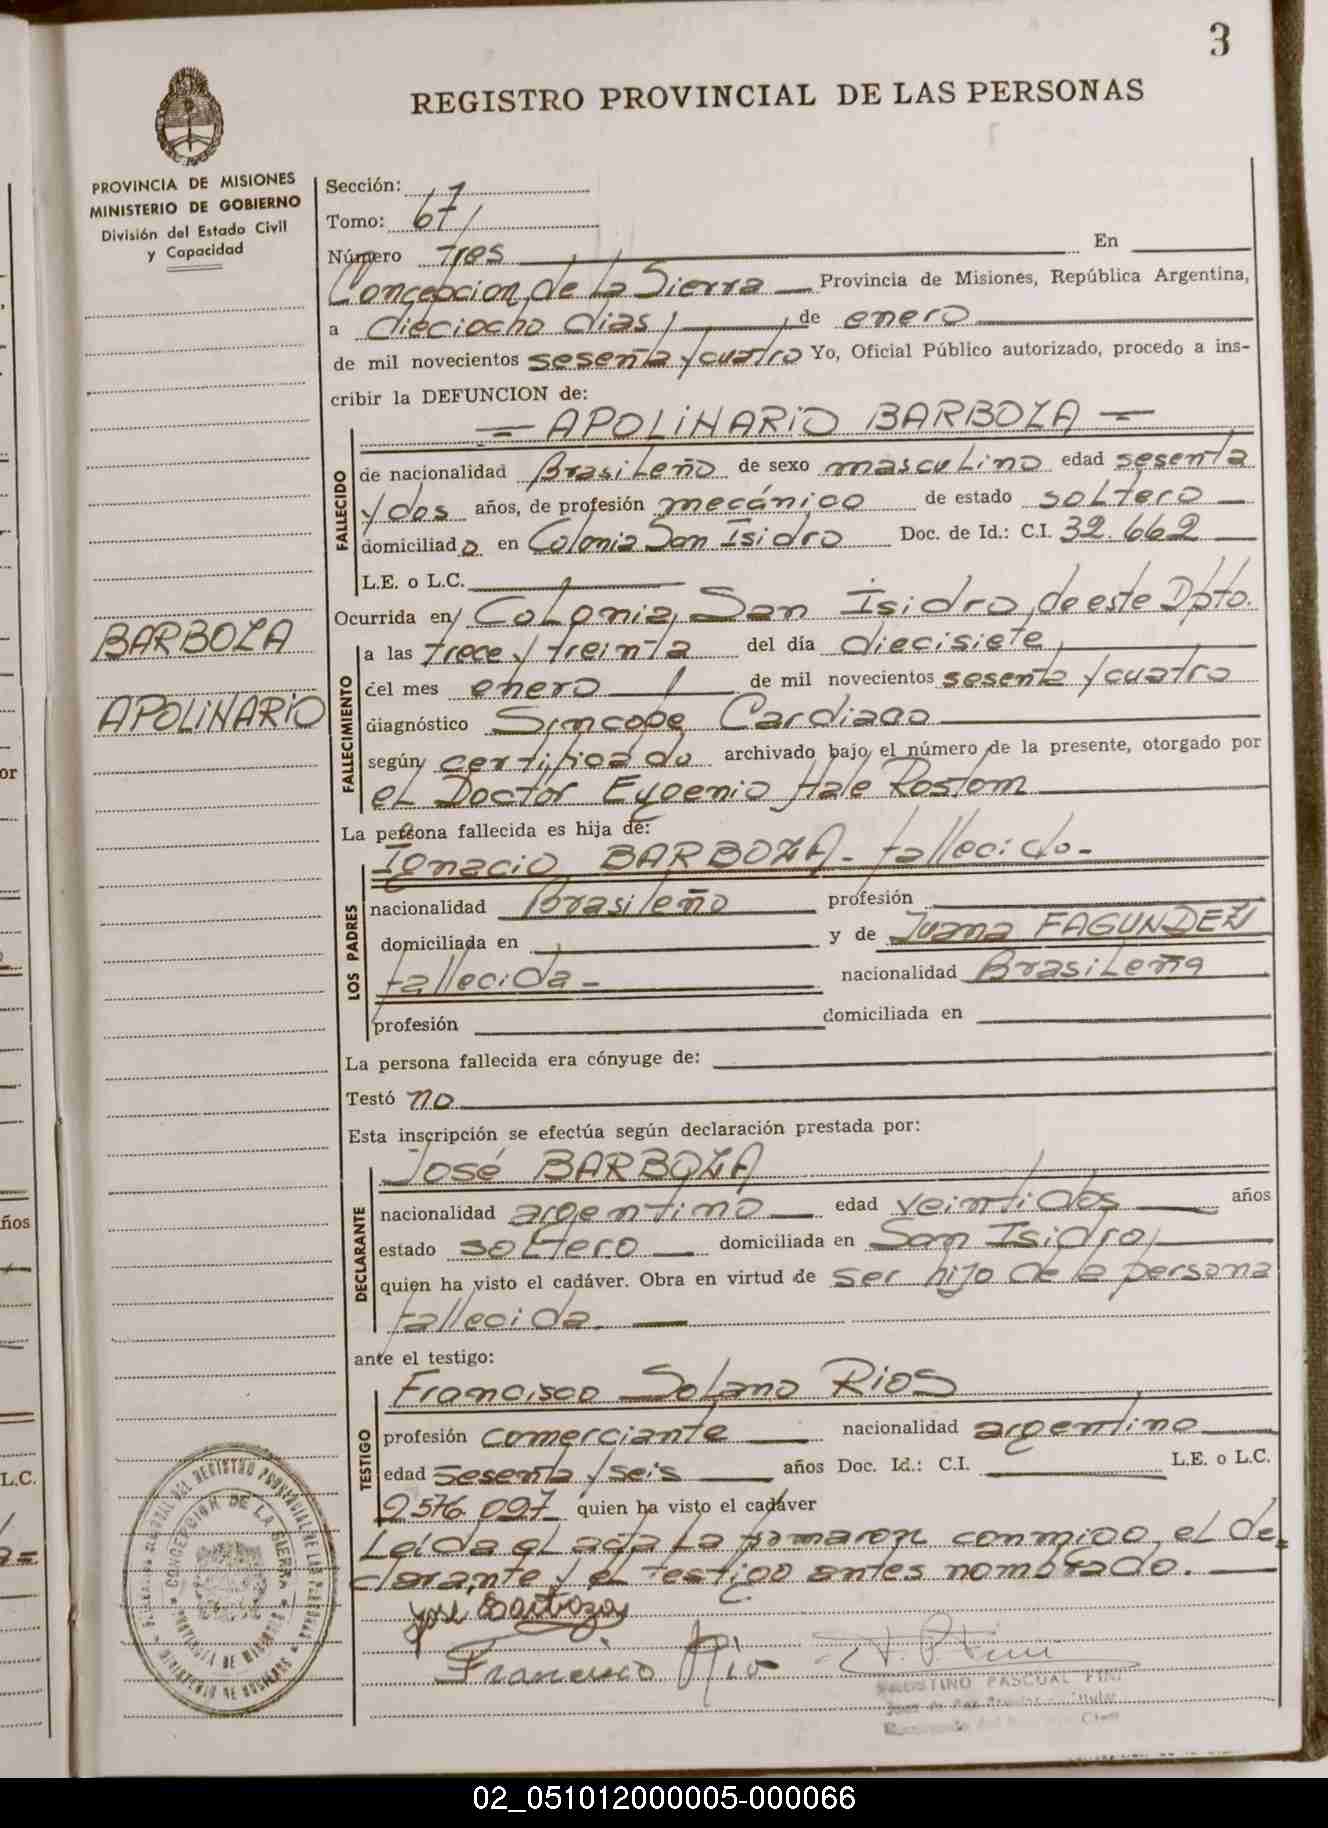 3
REGISTRO PROVINCIAL DE LAS PERSONAS
PROVINCIA DE MISIONES
MINISTERIO DE GOBIERNO
División del Estado Civil
y Capacidad
BARBOZA
APOLINARIO
Sección: 1
Tomo: 67
Número tres En
Concepcion de la Sierra Provincia de Misiones, República Argentina,
a dieciocho dias de enero
de mil novecientos sesenta y cuatro Yo, Oficial Público autorizado, procedo a ins-
cribir la DEFUNCION de:
= APOLINARIO BARBOZA =
FALLECIDO
de nacionalidad Brasileño de sexo masculino edad sesenta
y dos años, de profesión mecánico de estado soltero
domiciliado en Colonia San Isidro Doc. de Id.: C.I. 32.662
L.E. o L.C.
Ocurrida en Colonia San Isidro, de este Dpto.
FALLECIMIENTO
a las trece y treinta del día diecisiete
del mes enero de mil novecientos sesenta y cuatro
diagnóstico Sincope Cardiaco
según certificado archivado bajo el número de la presente, otorgado por
el Doctor Eugenio Hale Rostom
La persona fallecida es hija de:
LOS PADRES
Ignacio BARBOZA - fallecido -
nacionalidad Brasileño profesión
domiciliada en y de Juana FAGUNDEZ
fallecida - nacionalidad Brasileña
profesión domiciliada en
La persona fallecida era cónyuge de:
Testó no
Esta inscripción se efectúa según declaración prestada por:
DECLARANTE
José BARBOZA
nacionalidad argentino edad veintidos años
estado soltero domiciliada en San Isidro
quien ha visto el cadáver. Obra en virtud de ser hijo de la persona
fallecida.
ante el testigo:
TESTIGO
Francisco Solano RIOS
profesión comerciante nacionalidad argentino
edad sesenta y seis años Doc. Id.: C.I. L.E. o L.C.
2576.097 quien ha visto el cadáver
Leída el acta la firmaron conmigo, el de=
clarante y el testigo antes nombrado.
José Barboza
Francisco Rio
AGOSTINO PASCUAL FINI
CONCEPCION DE LA SIERRA
PROVINCIA DE MISIONES
REGISTRO PROVINCIAL DE LAS PERSONAS
02_051012000005-000066